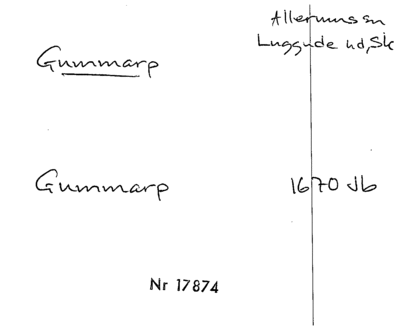 Allerums sn
Luggude hd, Sk
Gummarp
Gummarp 1670 Jb
Nr 17874